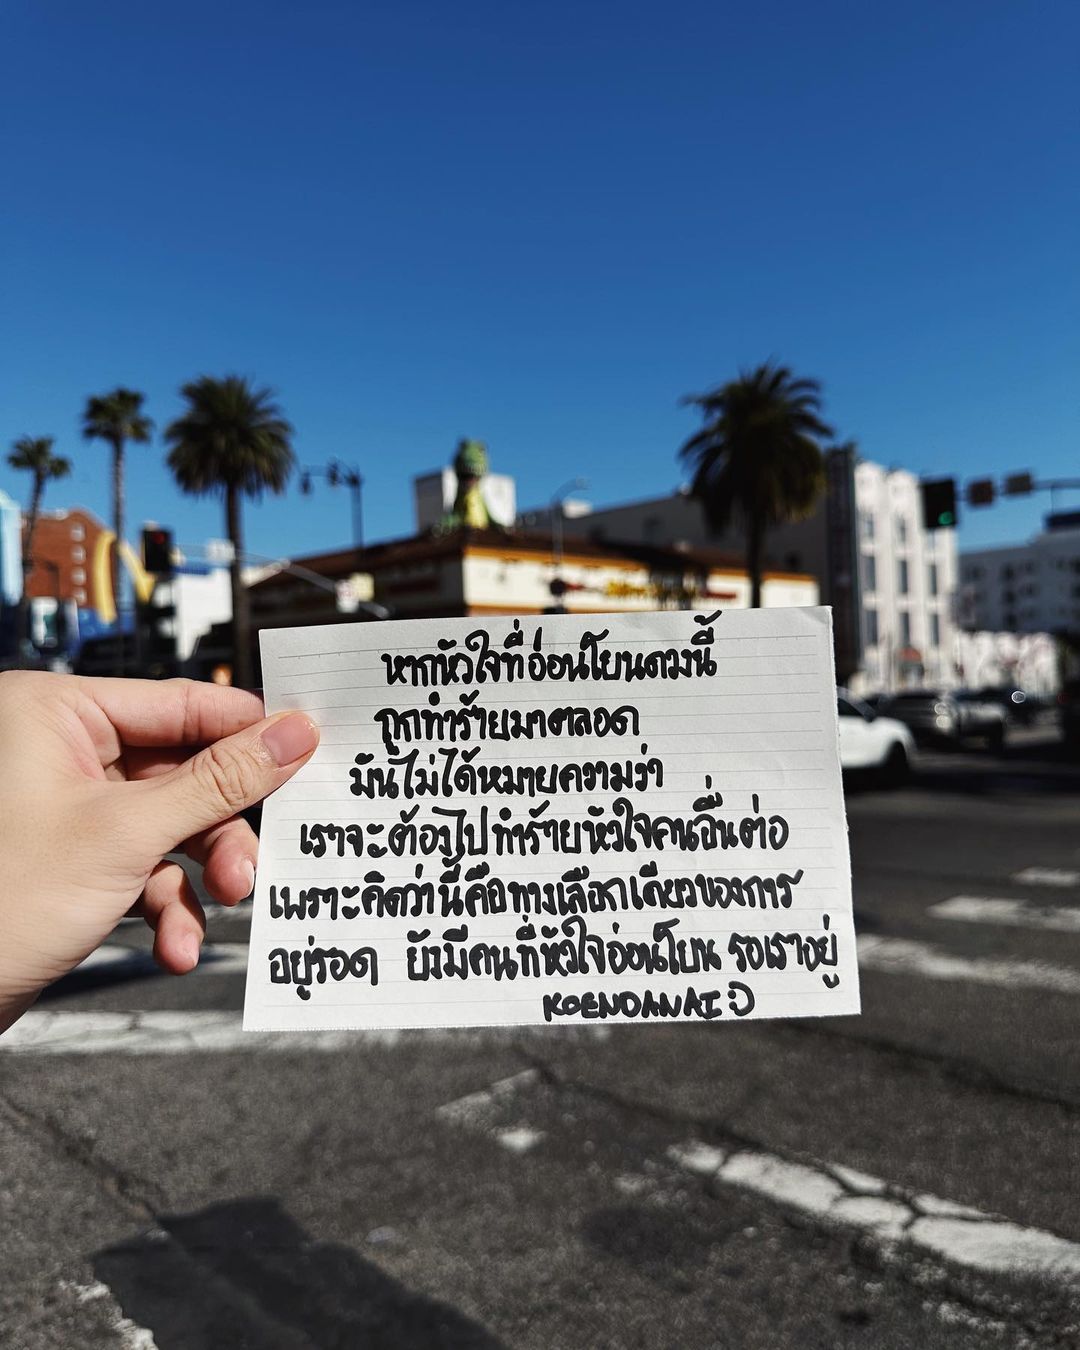 หากหัวใจที่อ่อนโยนดวงนี้
ถูกทำร้ายมาตลอด
มันไม่ได้หมายความว่า
เราจะต้องไปทำร้ายหัวใจคนอื่นต่อ
เพราะคิดว่านี้คือทางเลือกเดียวของการ
อยู่รอด ยังมีคนที่หัวใจอ่อนโยน รอเราอยู่
KOENDANAI :)